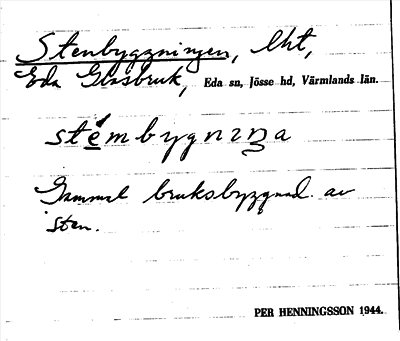 Stenbyggningen, lht,
Eda Glasbruk, Eda sn, Jösse hd, Värmlands län.
stémbygnıŋa
Gammal bruksbyggnad av
sten.
PER HENNINGSSON 1944.